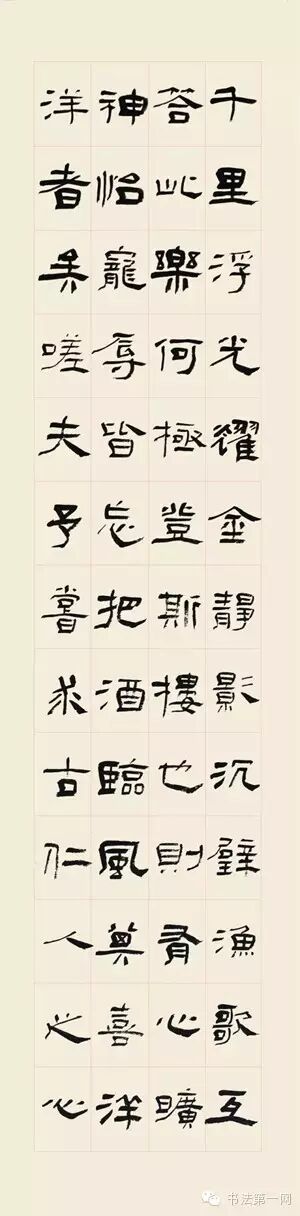 千里浮光耀金静影沉璧漁歌互
答此樂何極登斯摟也則有心曠
神怡寵辱皆忘把酒臨風其喜洋
洋者矣嗟夫予嘗求古仁人之心
书法第一网